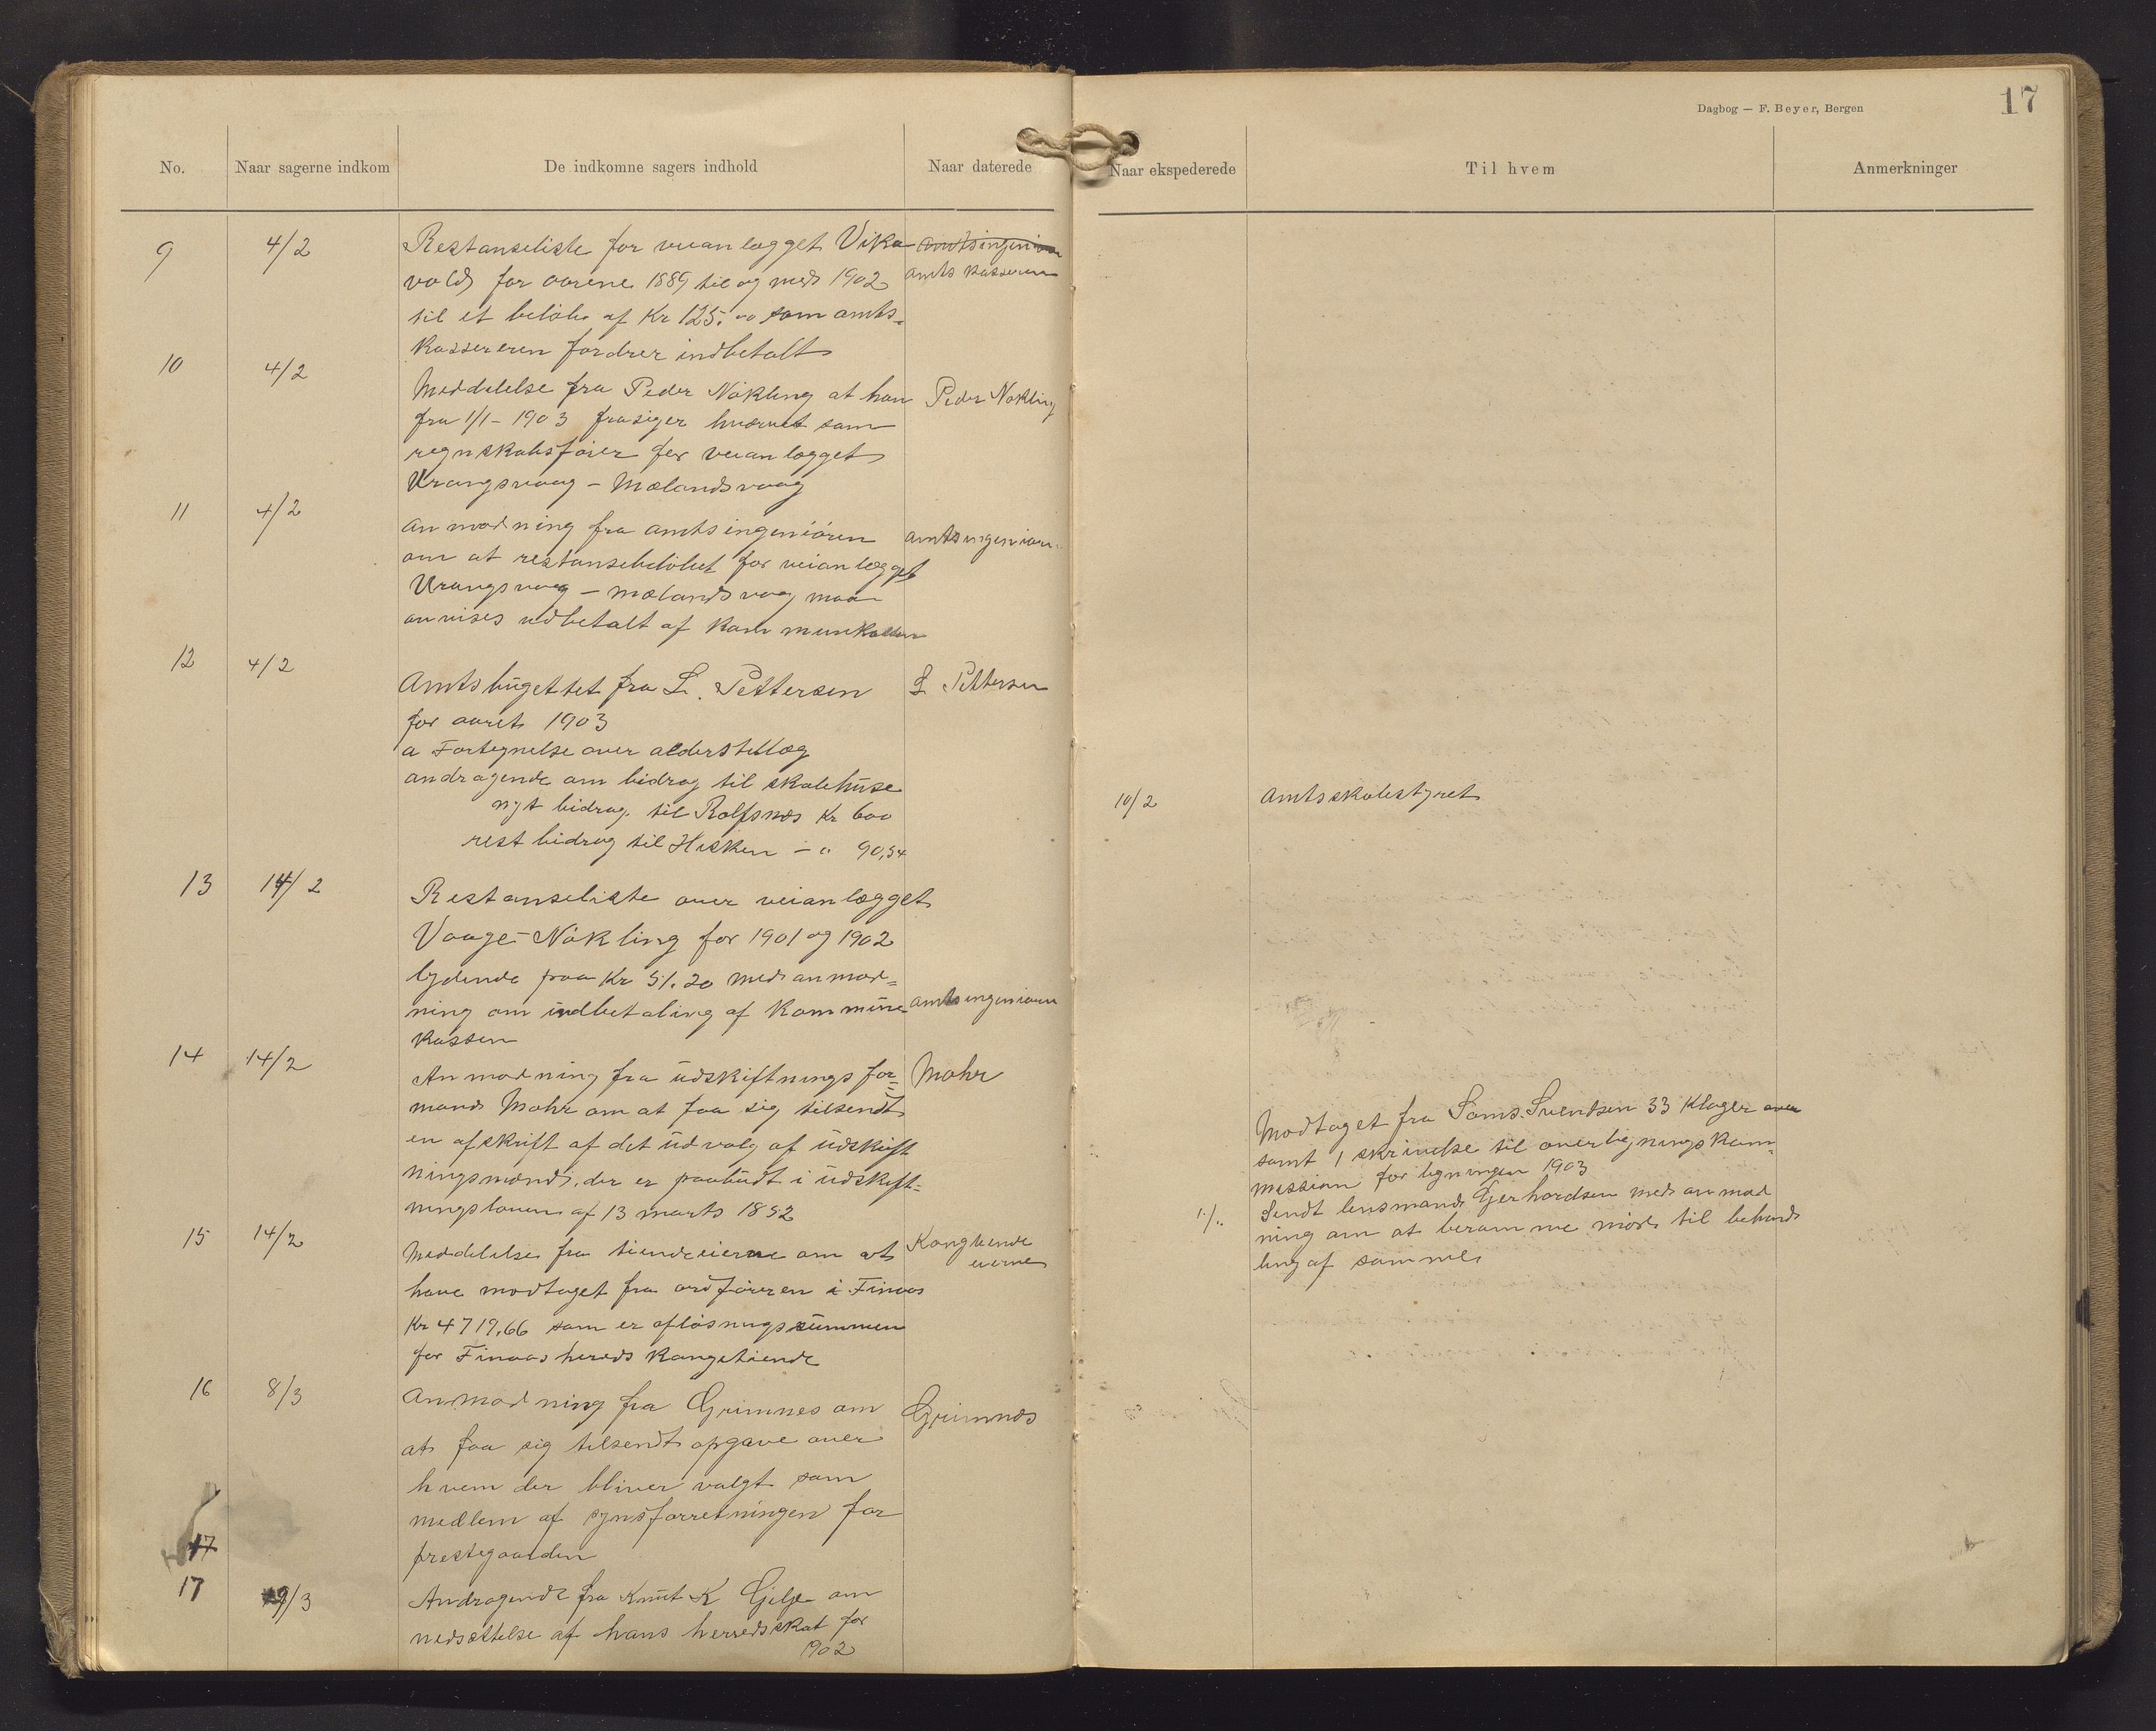 Dagbog — F. Beyer, Bergen
17
No. Naar sagerne indkom De indkomne sagers indhold Naar daterede Naar ekspederede Til hvem Anmerkninger
9 4/2 Restanseliste for veianlægget Vika- amtsingeniør
vold for aarene 1889 til og med 1902 amtskassereren
til et beløb af Kr 125.00 som amts-
kassereren fordrer indbetalt
10 4/2 Meddelelse fra Peder Nökling at han Peder Nökling
fra 1/1 - 1903 frasiger hvervet som
regnskabsfører for veianlægget
Urangsvaag - Mælandsvaag
11 4/2 Anmodning fra amtsingeniøren amtsingeniøren
om at restansebeløbet for veianlægget
Urangsvaag - Mælandsvaag maa
anvises udbetalt af
12 4/2 Amtsbugettet fra L. Pettersen L Pettersen
for aaret 1903
a Fortegnelse over alderstillæg
andragende om bidrag til skolehuse
nyt bidrag til Rolfsnes Kr 600
rest bidrag til Hisken - " 90,54
10/2 Amtsskolestyret
13 14/2 Restanseliste over veianlægget
Vaage - Nökling for 1901 og 1902
lydende paa Kr 51.20 med anmod-
ning om indbetaling af Kommune- amtsingeniøren
kassen
14 14/2 Anmodning fra udskiftningsfor- Mohr
mand Mohr om at faa sig tilsendt
en afskrift af det udvalg af udskift
ningsmænd, der er paabudt i udskift-
ningsloven af 13 marts 1882
15 14/2 Meddelelse fra tiendeeierne om at Kongtiende
have modtaget fra ordføreren i Finaas eierne
Kr 4719,66 som er afløsningssummen
for Finaas hereds Kongetiende
16 8/3 Anmodning fra Grimnes om Grimnes
at faa sig tilsendt opgave over
hvem der bliver valgt som
medlem af synsforretningen for
prestegaarden
17
17 9/3 Andragende fra Knut K Gilje om
nedsættelse af hans herredsskat for
1902
Modtaget fra Sams. Svendsen 33 Klager over
samt 1 skrivelse til overligningskom-
mission for ligningen 1903
Sendt lensmand Gerhardsen med anmod
ning om at beramme møde til behand
ling af samme